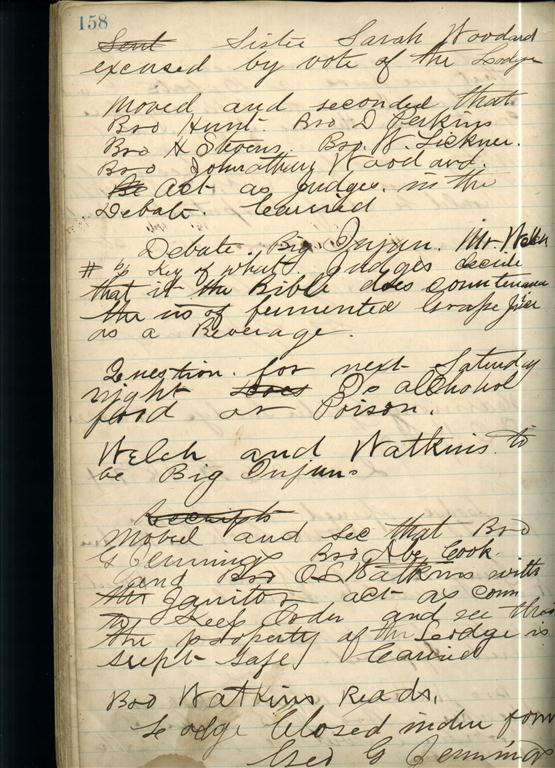 158
Sent Sister Sarah Woodard
excused by vote of the Lodge
Moved and seconded that
Bro Hunt. Bro D Jerkins
Bro H Stevens. Bro W. Sickner.
Bro Johnathan Woodard.
Be Act as Judges. in the
Debate. Carried
Debate. Big Injun. Mr. Welch
# by Key of what. Judges decide
that it the Bible does countenance
the us of fermented Grape Juice
as a Beverage.
Question. for next Saturday
night Does Is alchohol
food or Poison.
Welch and Watkins to
be Big Injun.
Receipts
Moved and sec that Bro
G Jennings Bro Abe Cook
and Bro O S Watkins with
the Janitor act as com
to Keep Order and see that
the property of the Lodge is
kept safe Carried
Bro Watkins Reads.
Lodge Closed in due form
Geo G Jennings